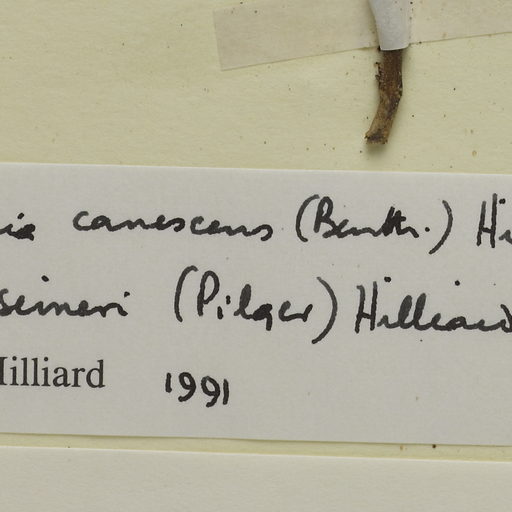 ia canescens (Benth.) Hi
seineri (Pilger) Hilliard
Hilliard 1991